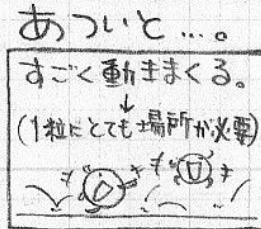 あついと…。
すごく動きまくる。
↓
(1粒にとても場所が必要)